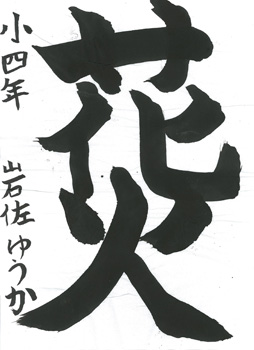 花火
小四年 岩佐ゆうか